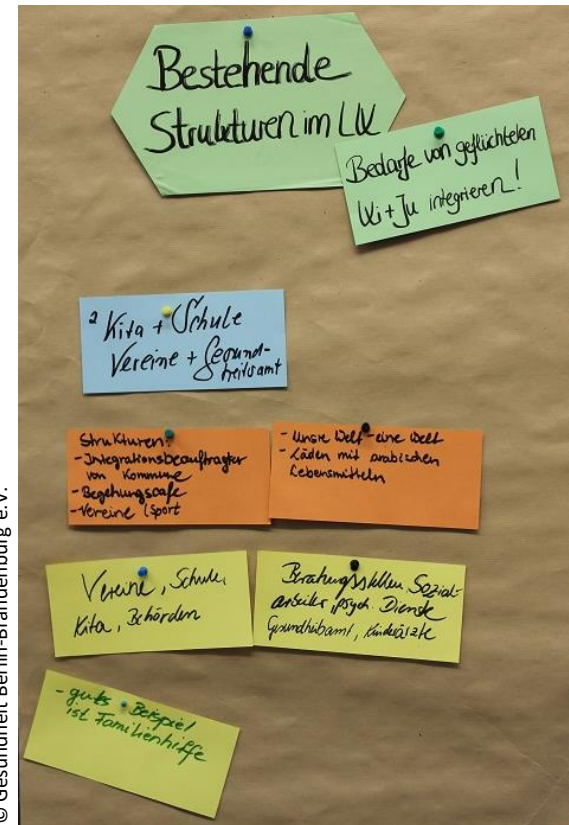 Bestehende
Strukturen im LK
Bedarfe von geflüchteten
Ki + Ju integrieren!
2 Kita + Schule
Vereine + Gesund-
heitsamt
Strukturen:
- Integrationsbeauftragter
von Kommune
- Begehungscafe
- Vereine (Sport
- Unsre Welt - eine Welt
- Läden mit arabischen
Lebensmitteln
Vereine, Schule,
Kita, Behörden
Beratungsstellen, Sozial-
arbeiter, psych. Dienste
Gesundheitsamt, Kinderärzte
- gutes Beispiel
ist Familienhilfe
© Gesundheit Berlin-Brandenburg e.V.